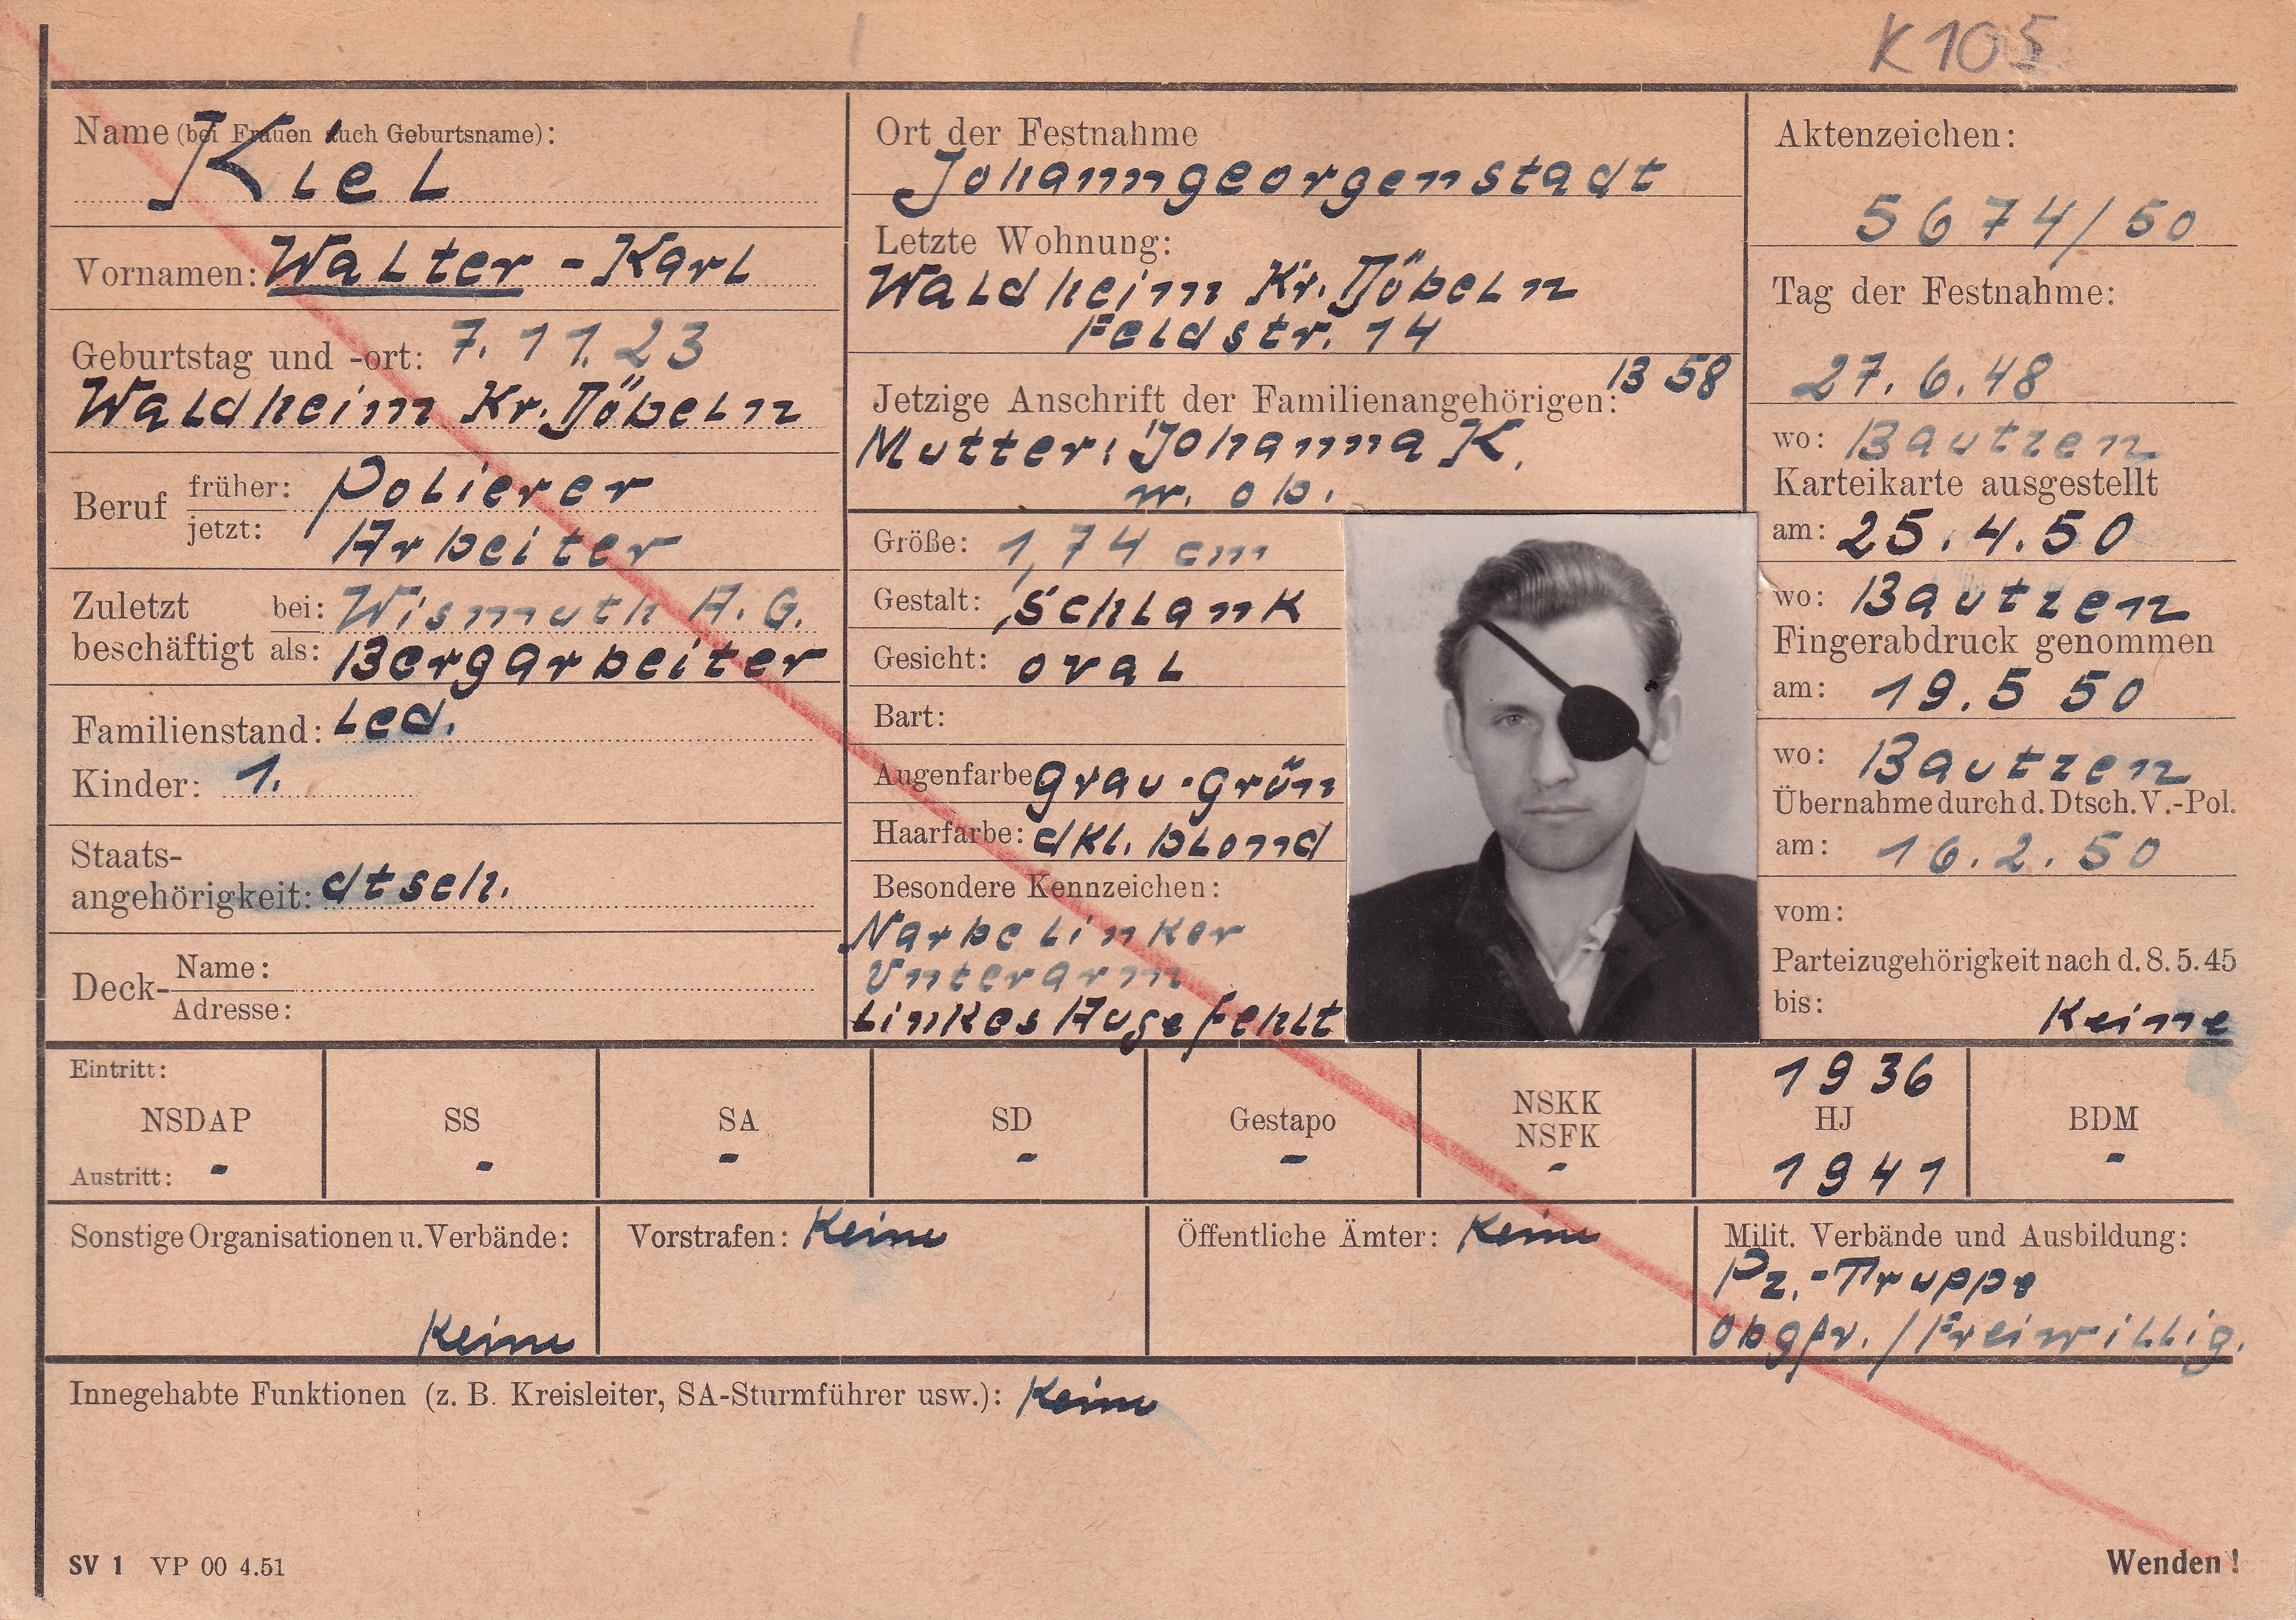 K 105
Name (bei Frauen auch Geburtsname):
Kiel
Vornamen: Walter - Karl
Geburtstag und -ort: 7. 11. 23
Waldheim Kr. Döbeln
Beruf früher: Polierer
jetzt: Arbeiter
Zuletzt beschäftigt bei: Wismuth A. G.
als: Bergarbeiter
Familienstand: Led.
Kinder: 1.
Staats-
angehörigkeit: dtsch.
Deck- Name:
Adresse:
Ort der Festnahme
Johanngeorgenstadt
Letzte Wohnung:
Waldheim Kr. Döbeln
Feldstr. 14
Jetzige Anschrift der Familienangehörigen: 13 58
Mutter: Johanna K.
w. ob.
Größe: 1,74 cm
Gestalt: Schlank
Gesicht: oval
Bart:
Augenfarbe grau-grün
Haarfarbe: dkl. blond
Besondere Kennzeichen:
Narbe linker
Unterarm
Linkes Auge fehlt
Aktenzeichen:
5674/50
Tag der Festnahme:
27. 6. 48
wo: Bautzen
Karteikarte ausgestellt
am: 25. 4. 50
wo: Bautzen
Fingerabdruck genommen
am: 19. 5 50
wo: Bautzen
Übernahme durch d. Dtsch. V.-Pol.
am: 16. 2. 50
vom:
Parteizugehörigkeit nach d. 8. 5. 45
bis: Keine
Eintritt: 1936
NSDAP SS SA SD Gestapo NSKK NSFK HJ BDM
Austritt: - - - - - - 1941 -
Sonstige Organisationen u. Verbände:
Keine
Vorstrafen: Keine
Öffentliche Ämter: Keine
Milit. Verbände und Ausbildung:
Pz.-Truppe
Obgfr. / Freiwillig.
Innegehabte Funktionen (z. B. Kreisleiter, SA-Sturmführer usw.): Keine
SV 1 VP 00 4.51
Wenden!